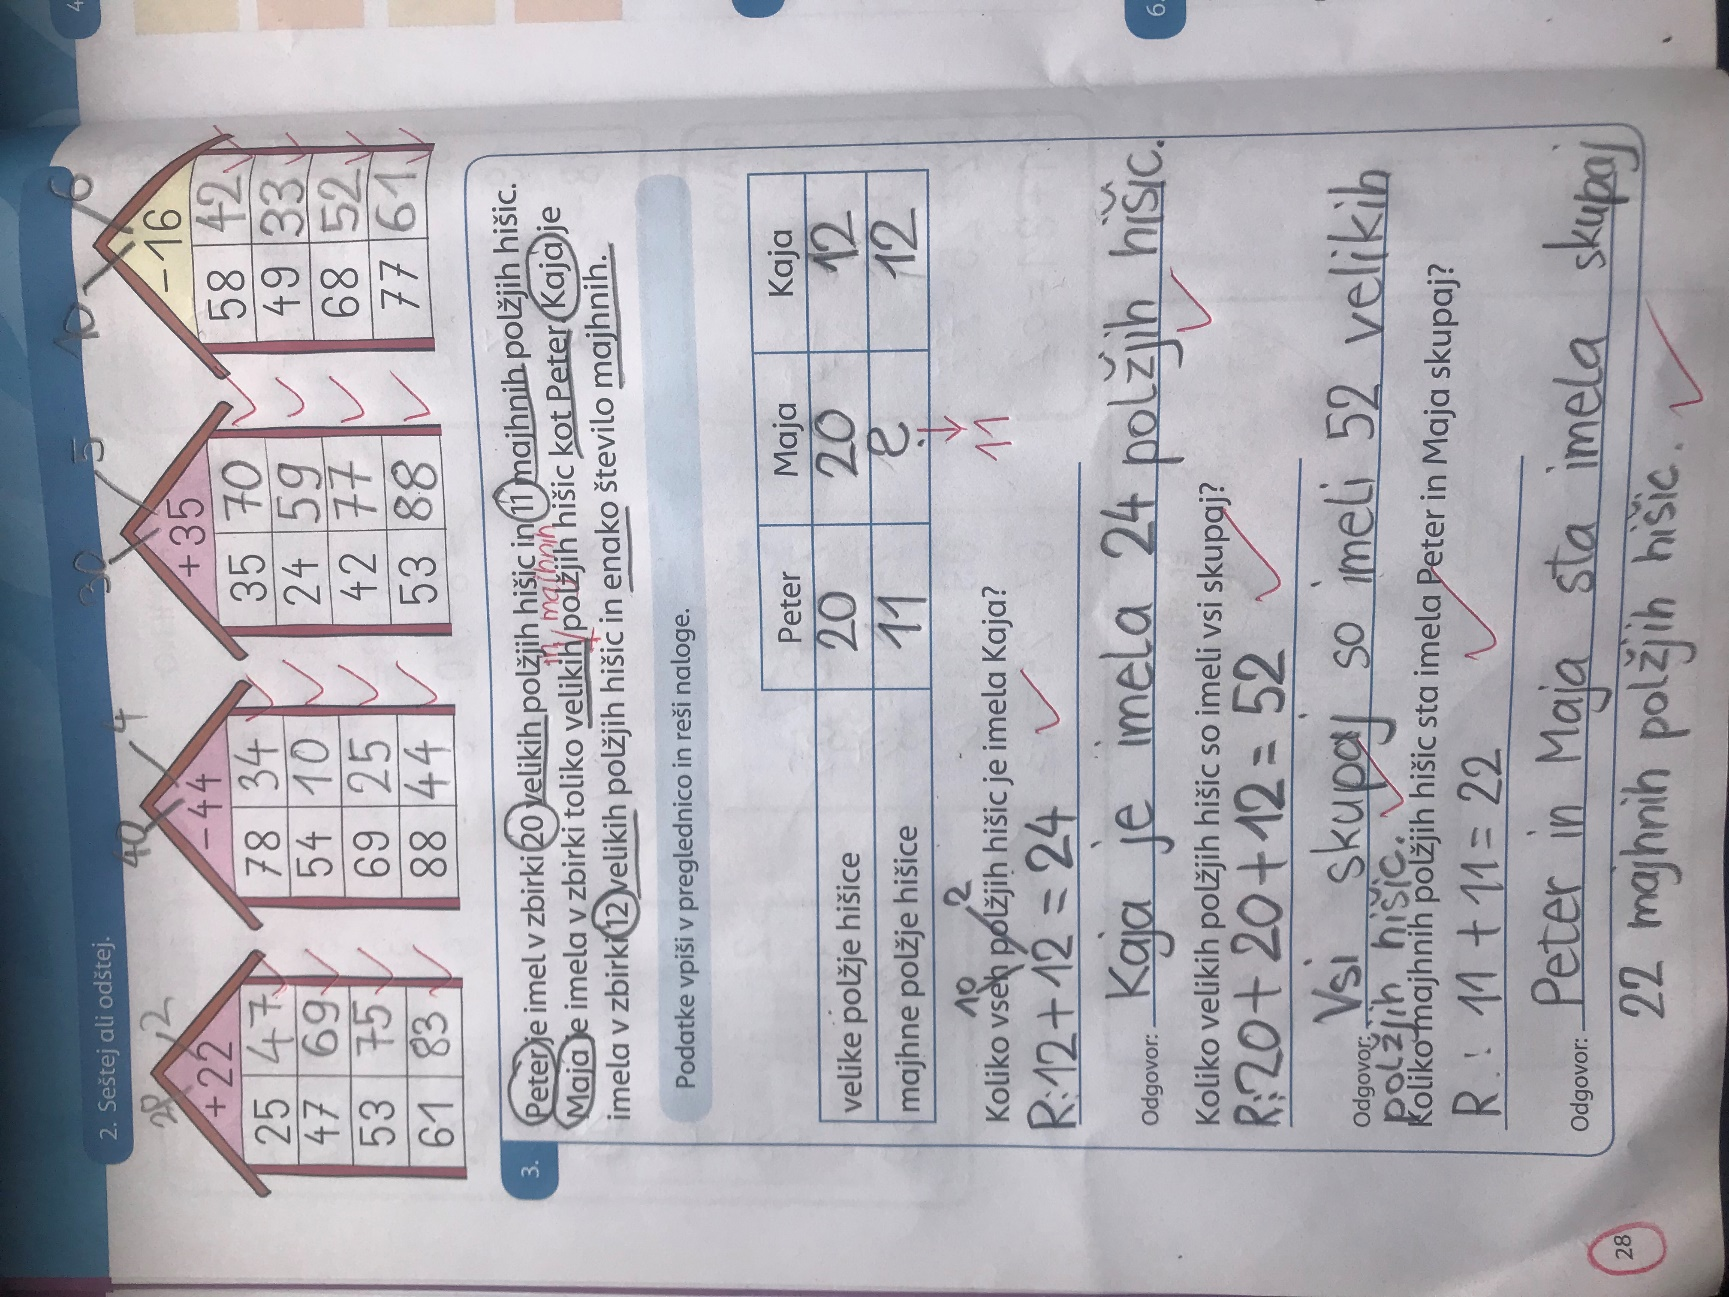 4.
2. Seštej ali odštej.
20 2
40 4
30 5
10 6
+22
-44
+35
-16
25 47
47 69
53 75
61 83
78 34
54 10
69 25
88 44
35 70
24 59
42 77
53 88
58 42
49 33
68 52
77 61
3.
Peter je imel v zbirki 20 velikih polžjih hišic in 11 majhnih polžjih hišic.
in majhnih
Maja je imela v zbirki toliko velikih polžjih hišic kot Peter. Kaja je
imela v zbirki 12 velikih polžjih hišic in enako število majhnih.
Podatke vpiši v preglednico in reši naloge.
Peter Maja Kaja
velike polžje hišice 20 20 12
majhne polžje hišice 11 ? 12
11
Koliko vseh polžjih hišic je imela Kaja?
10 2
R: 12 + 12 = 24
Odgovor: Kaja je imela 24 polžjih hišic.
Koliko velikih polžjih hišic so imeli vsi skupaj?
R: 20 + 20 + 12 = 52
Odgovor: Vsi skupaj so imeli 52 velikih
polžjih hišic.
Koliko majhnih polžjih hišic sta imela Peter in Maja skupaj?
R: 11 + 11 = 22
Odgovor: Peter in Maja sta imela skupaj
22 majhnih polžjih hišic.
28
6.